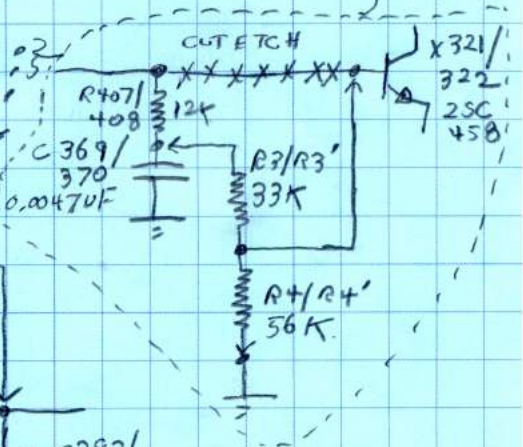 CUT ETCH
X321/
322
2SC
458
.2
.5
R407/
408
12K
C369/
370
0.0047UF
R3/R3'
33K
R4/R4'
56K.